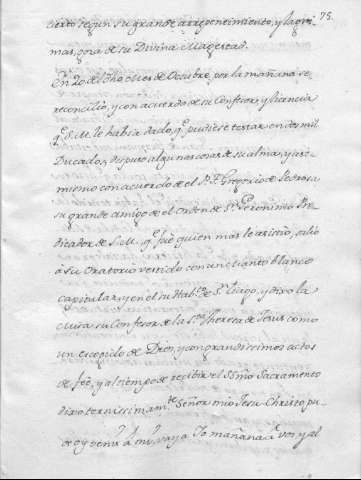 75.
cierto segun su grande arrepentimiento, y lagri-
mas, goza de su Divina Magestad.
En 20 de dho Mes de Octubre, por la mañana se
reconcilio, y con acuerdo de su Confesor, y licencia
q.e S.M. le habia dado, q.e pudiese testar en dos mil
Ducados, dispuso algunas cosas de su alma, y asi
mismo con acuerdo de el P. F. Gregorio de Pedrosa
su grande amigo de el Orden de S.n Geronimo Pre-
dicador de S.M. q.e fué quien mas le asistio, salio
á su Oratorio vestido con un manto blanco
capitular, y en el su Hab.to de S.tiago, y dixo la
Misa su Confesor de la S.ta Theresa de Jesus como
un escogido de Dios, y con grandissimos actos
de feé, y al tiempo de recibir el S.mo Sacramento
dixo ternissimam.te Señor mio Jesu-Christo pu-
de oy venir á mi, vaya Yo mañana á vos y al